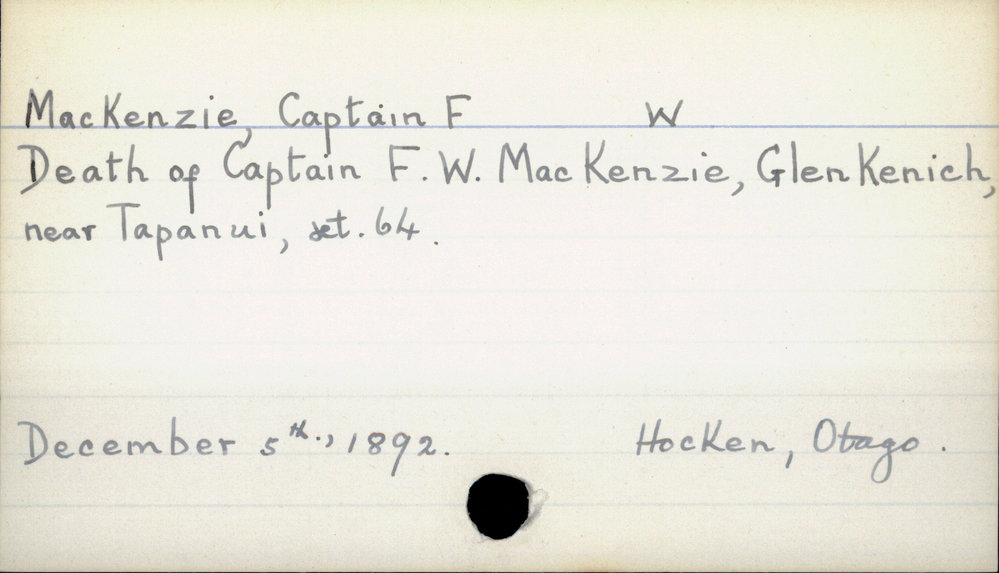 MacKenzie, Captain F W
Death of Captain F. W. MacKenzie, Glenkenich,
near Tapanui, æt. 64.
December 5th., 1892. Hocken, Otago.